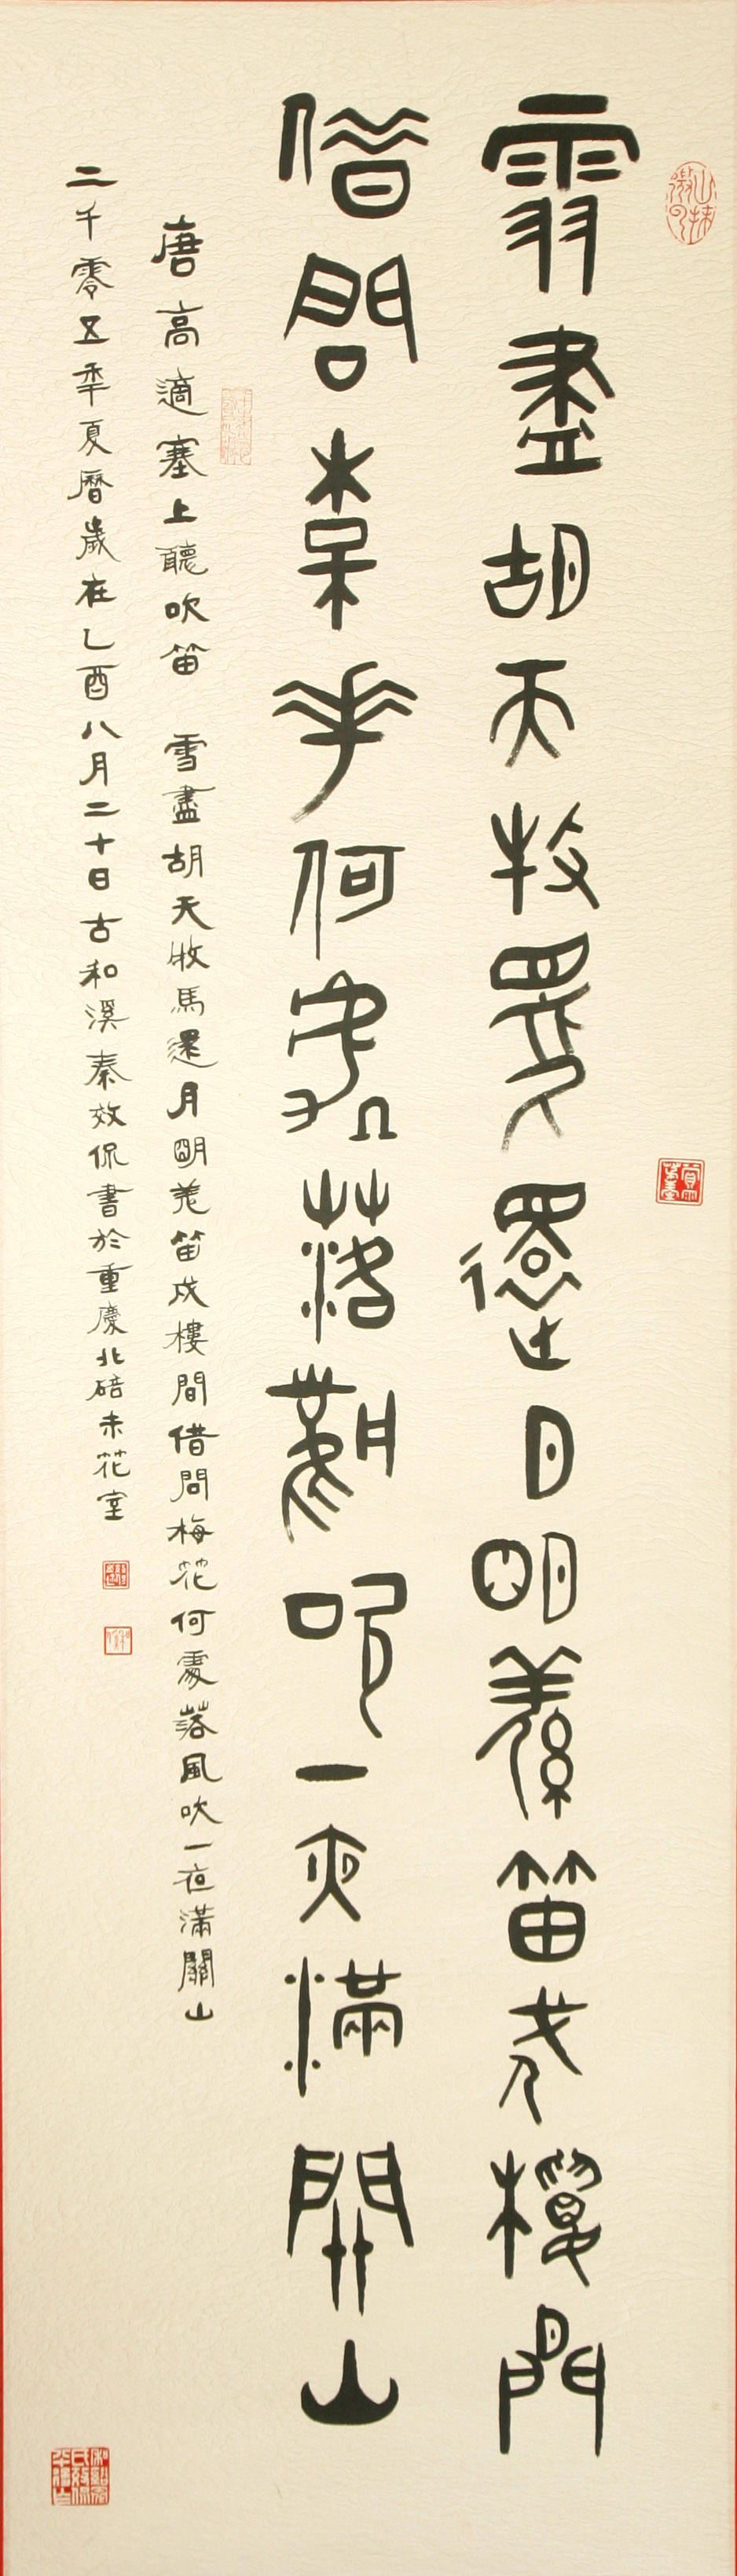 雪盡胡天牧馬還月明羌笛戍樓間
借問梅花何處落風吹一夜滿關山
唐高適塞上聽吹笛 雪盡胡天牧馬還月明羌笛戍樓間借問梅花何處落風吹一夜滿關山
二千零五年夏曆歲在乙酉八月二十日古和溪秦效侃書於重慶北碚未花室